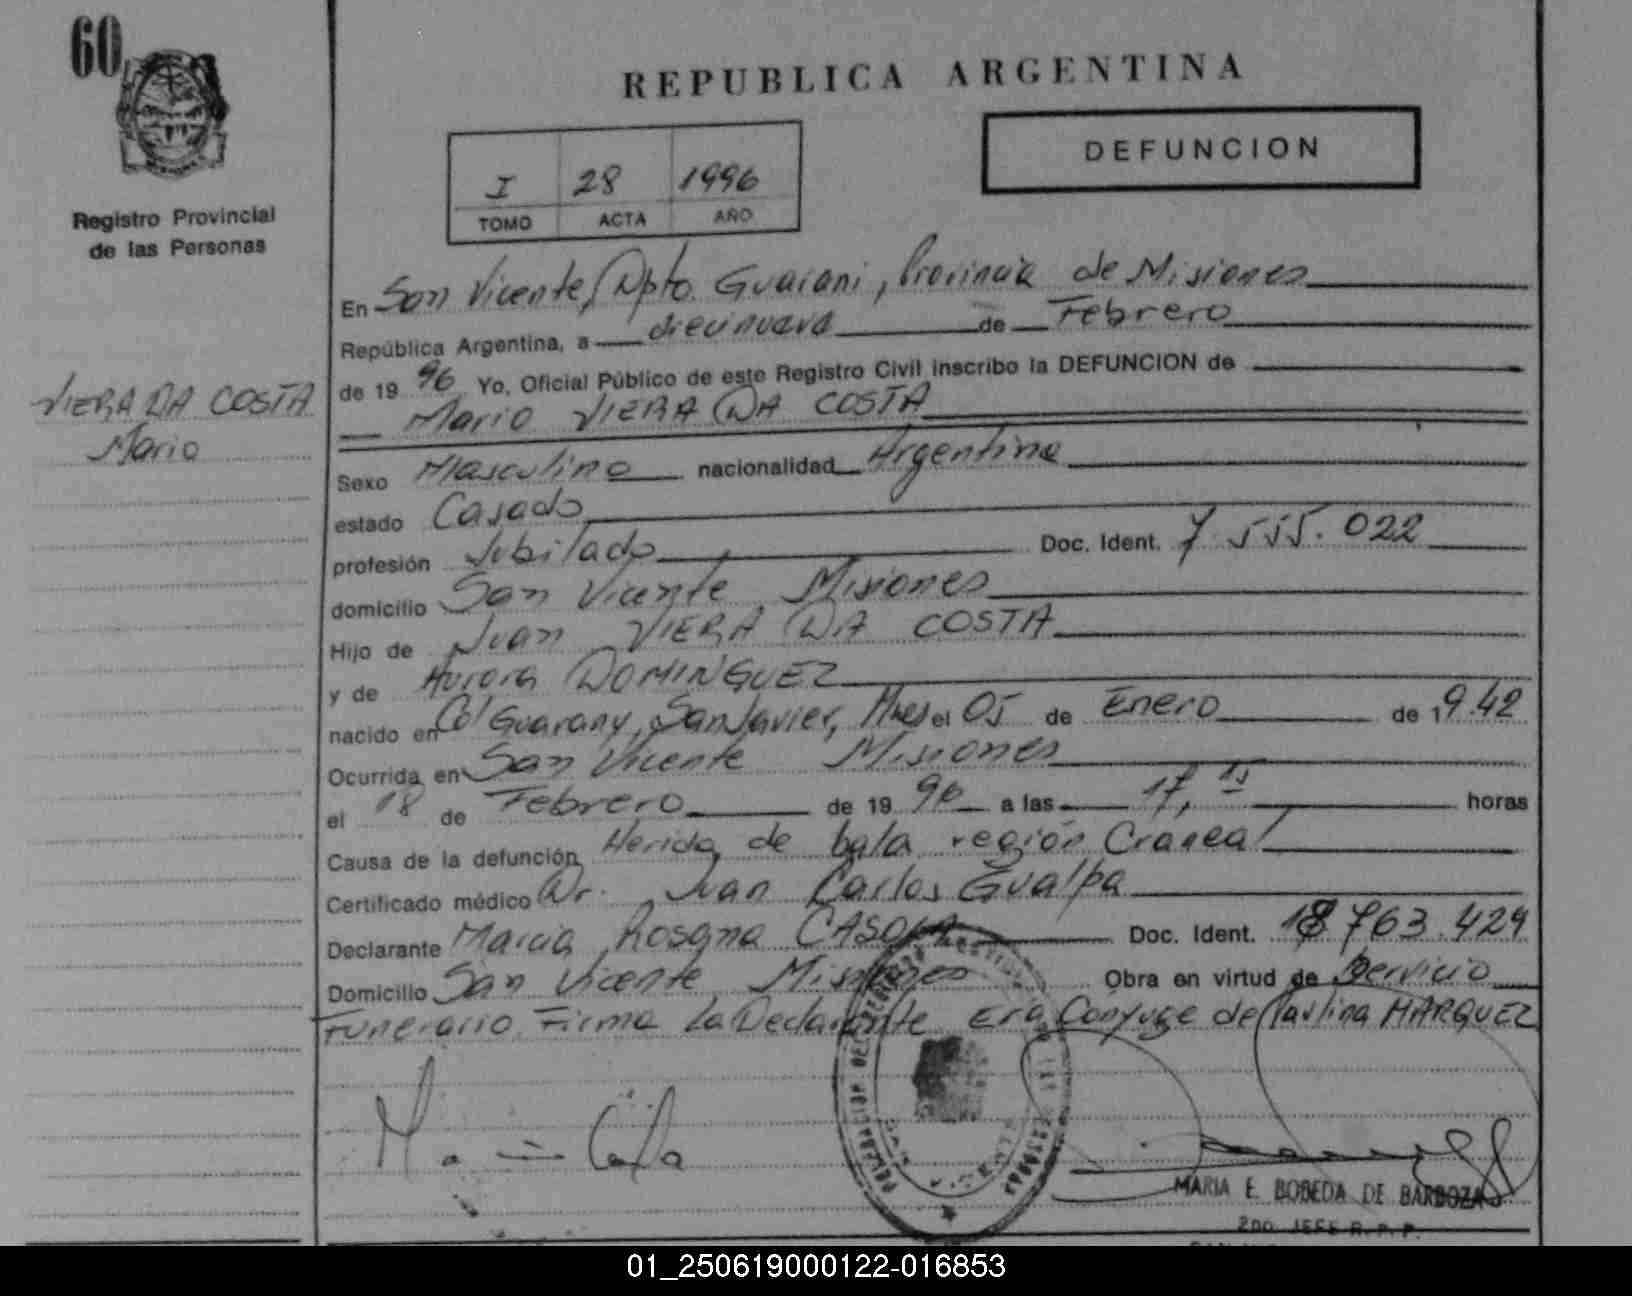 60
REPUBLICA ARGENTINA
DEFUNCION
I 28 1996
TOMO ACTA AÑO
Registro Provincial
de las Personas
En San Vicente, Dpto. Guarani, Provincia de Misiones
República Argentina, a diecinueve de Febrero
de 19 96 Yo, Oficial Público de este Registro Civil inscribo la DEFUNCION de
VIERA DA COSTA
Mario
Mario VIERA DA COSTA
Sexo Masculino nacionalidad Argentina
estado Casado
profesión Jubilado Doc. Ident. 7.555.022
domicilio San Vicente Misiones
Hijo de Juan VIERA DA COSTA
y de Aurora DOMINGUEZ
nacido en Col Guarany, San Javier, Mnes el 05 de Enero de 19.42
Ocurrida en San Vicente Misiones
el 18 de Febrero de 19 96 a las 17,15 horas
Causa de la defunción Herida de bala región Craneal
Certificado médico Dr. Juan Carlos Gualpa
Declarante Maria Rosana CASOLA Doc. Ident. 18.763.429
Domicilio San Vicente Misiones Obra en virtud de Servicio
Funerario. Firma La Declarante Era Cónyuge de Paulina MARQUEZ
MARIA E. BOBEDA DE BARBOZA
2DO. JEFE R.P.P.
01_250619000122-016853